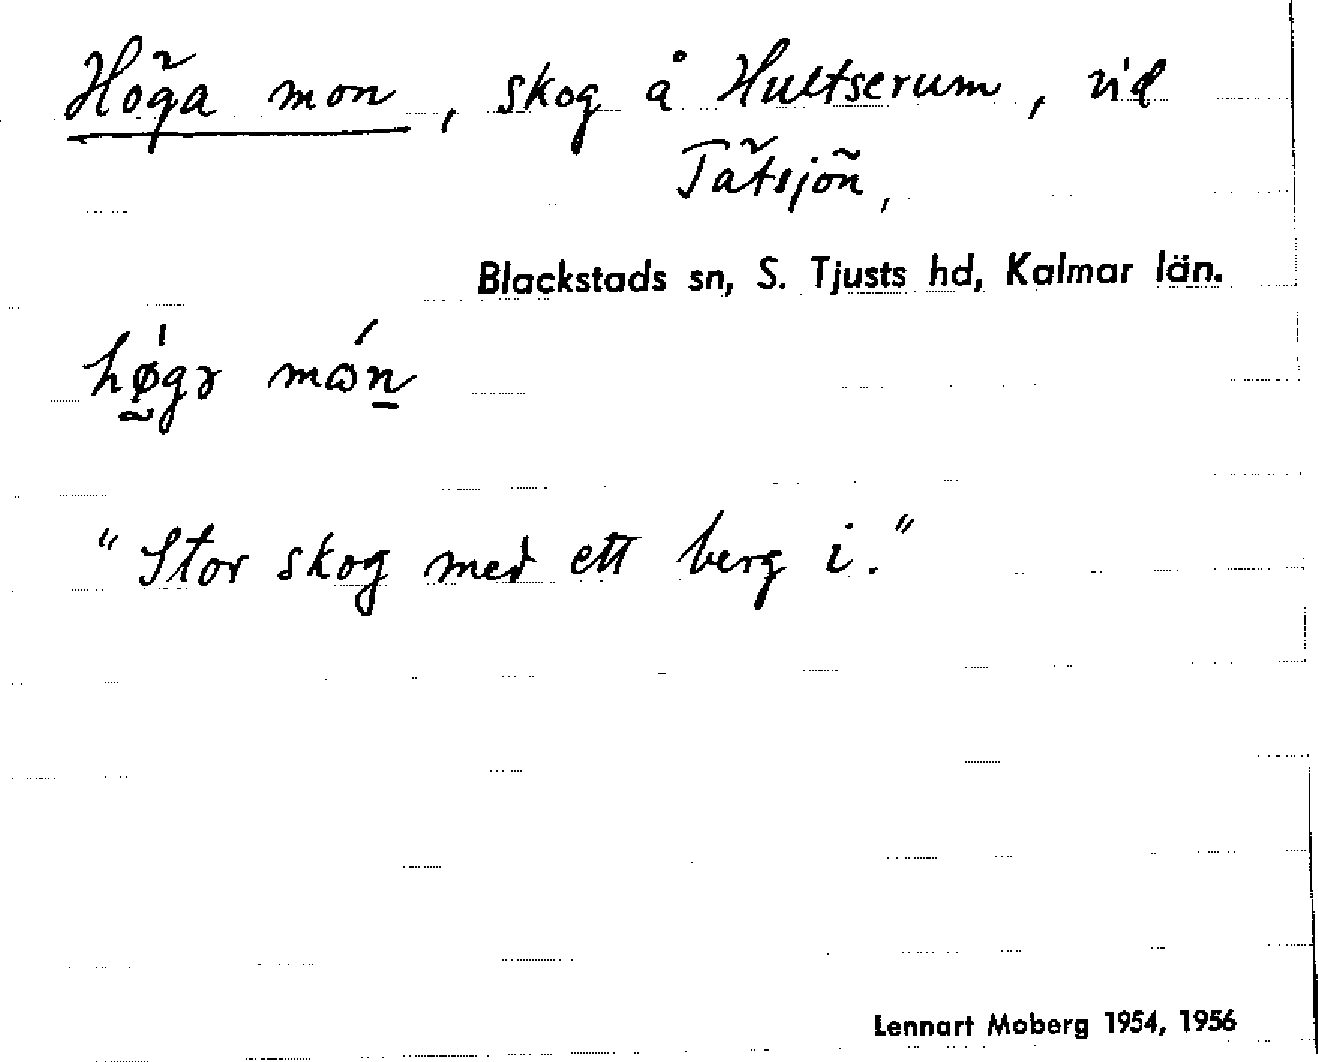 Höga mon, skog å Hultserum, vid
Tätsjön,
Blackstads sn, S. Tjusts hd, Kalmar län.
hǿ̰gɘ mɷ́n̲
"Stor skog med ett berg i."
Lennart Moberg 1954, 1956